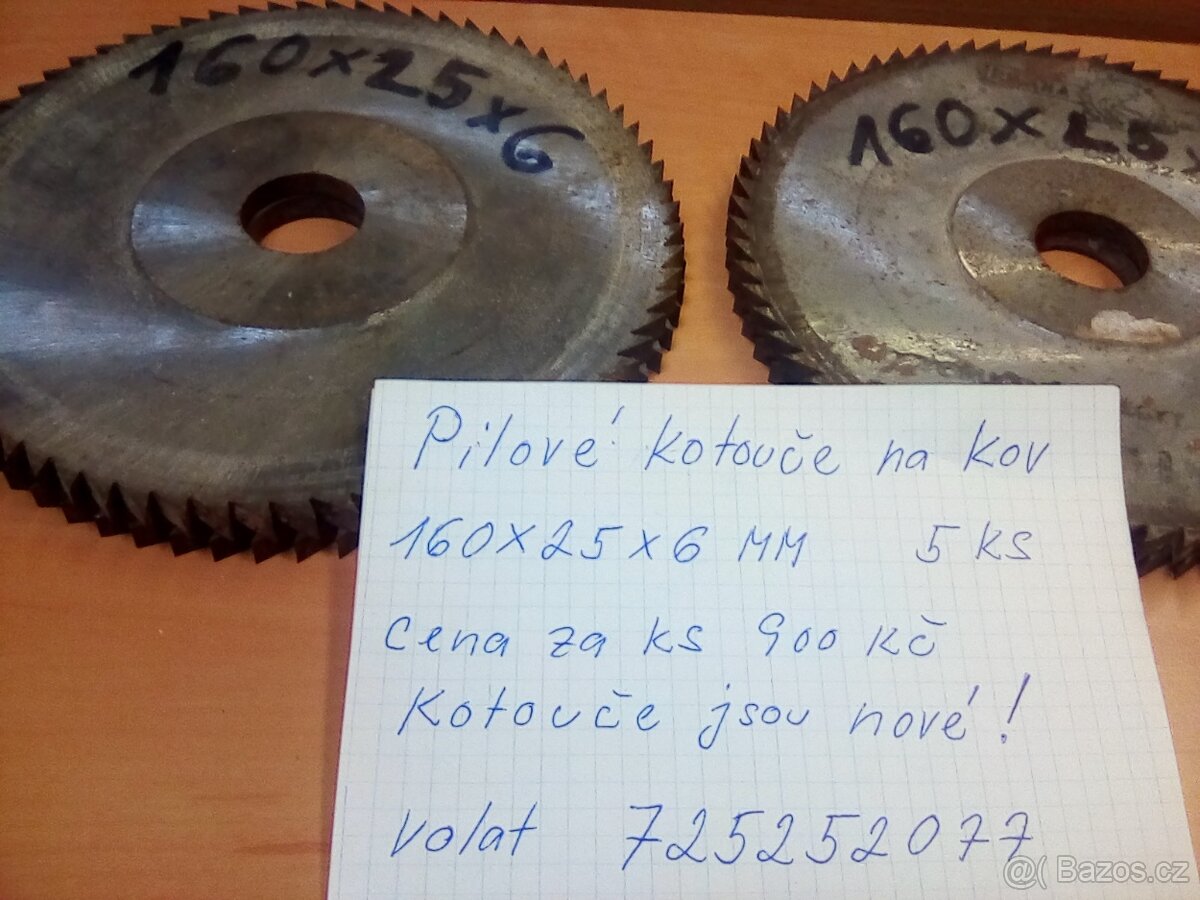 160x25x6
160x25
Pilové kotouče na kov
160x25x6 mm 5 ks
cena za ks 900 kč
Kotouče jsou nové!
volat 725252077
@( Bazos.cz